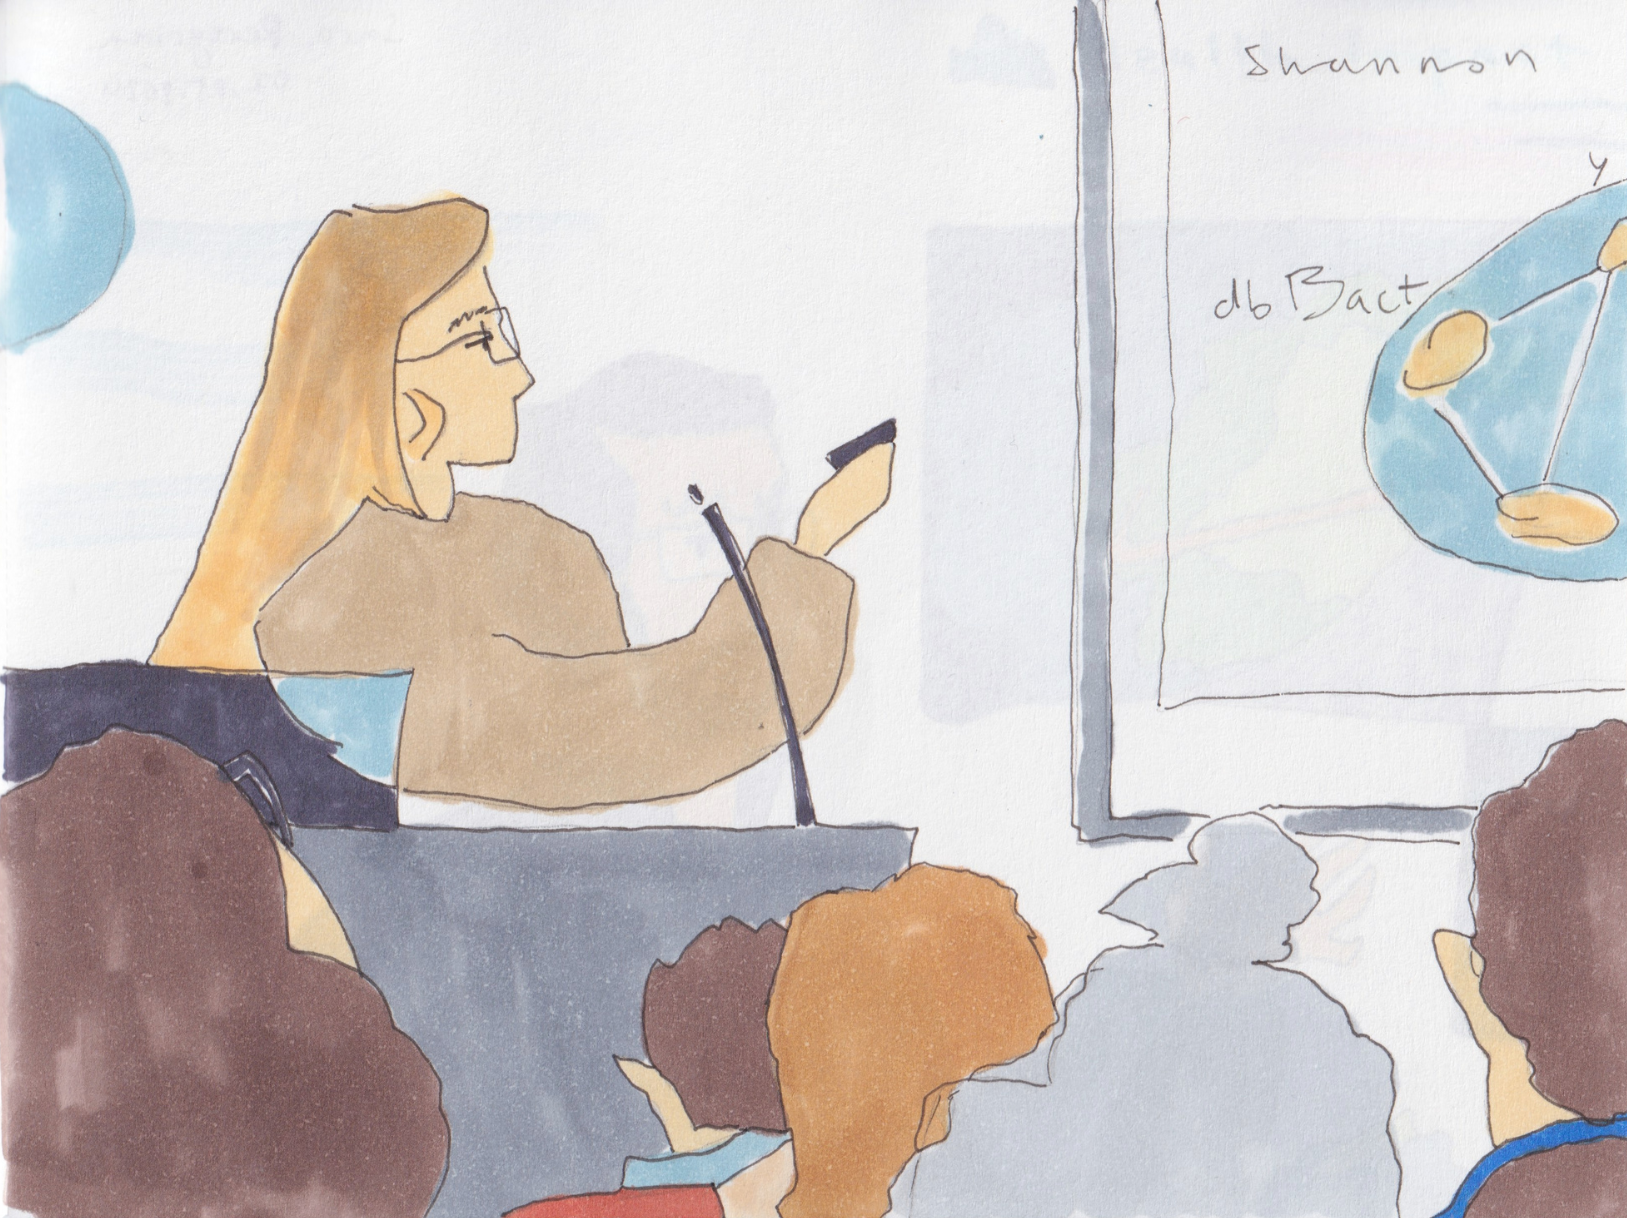 Shannon
y
db Bact